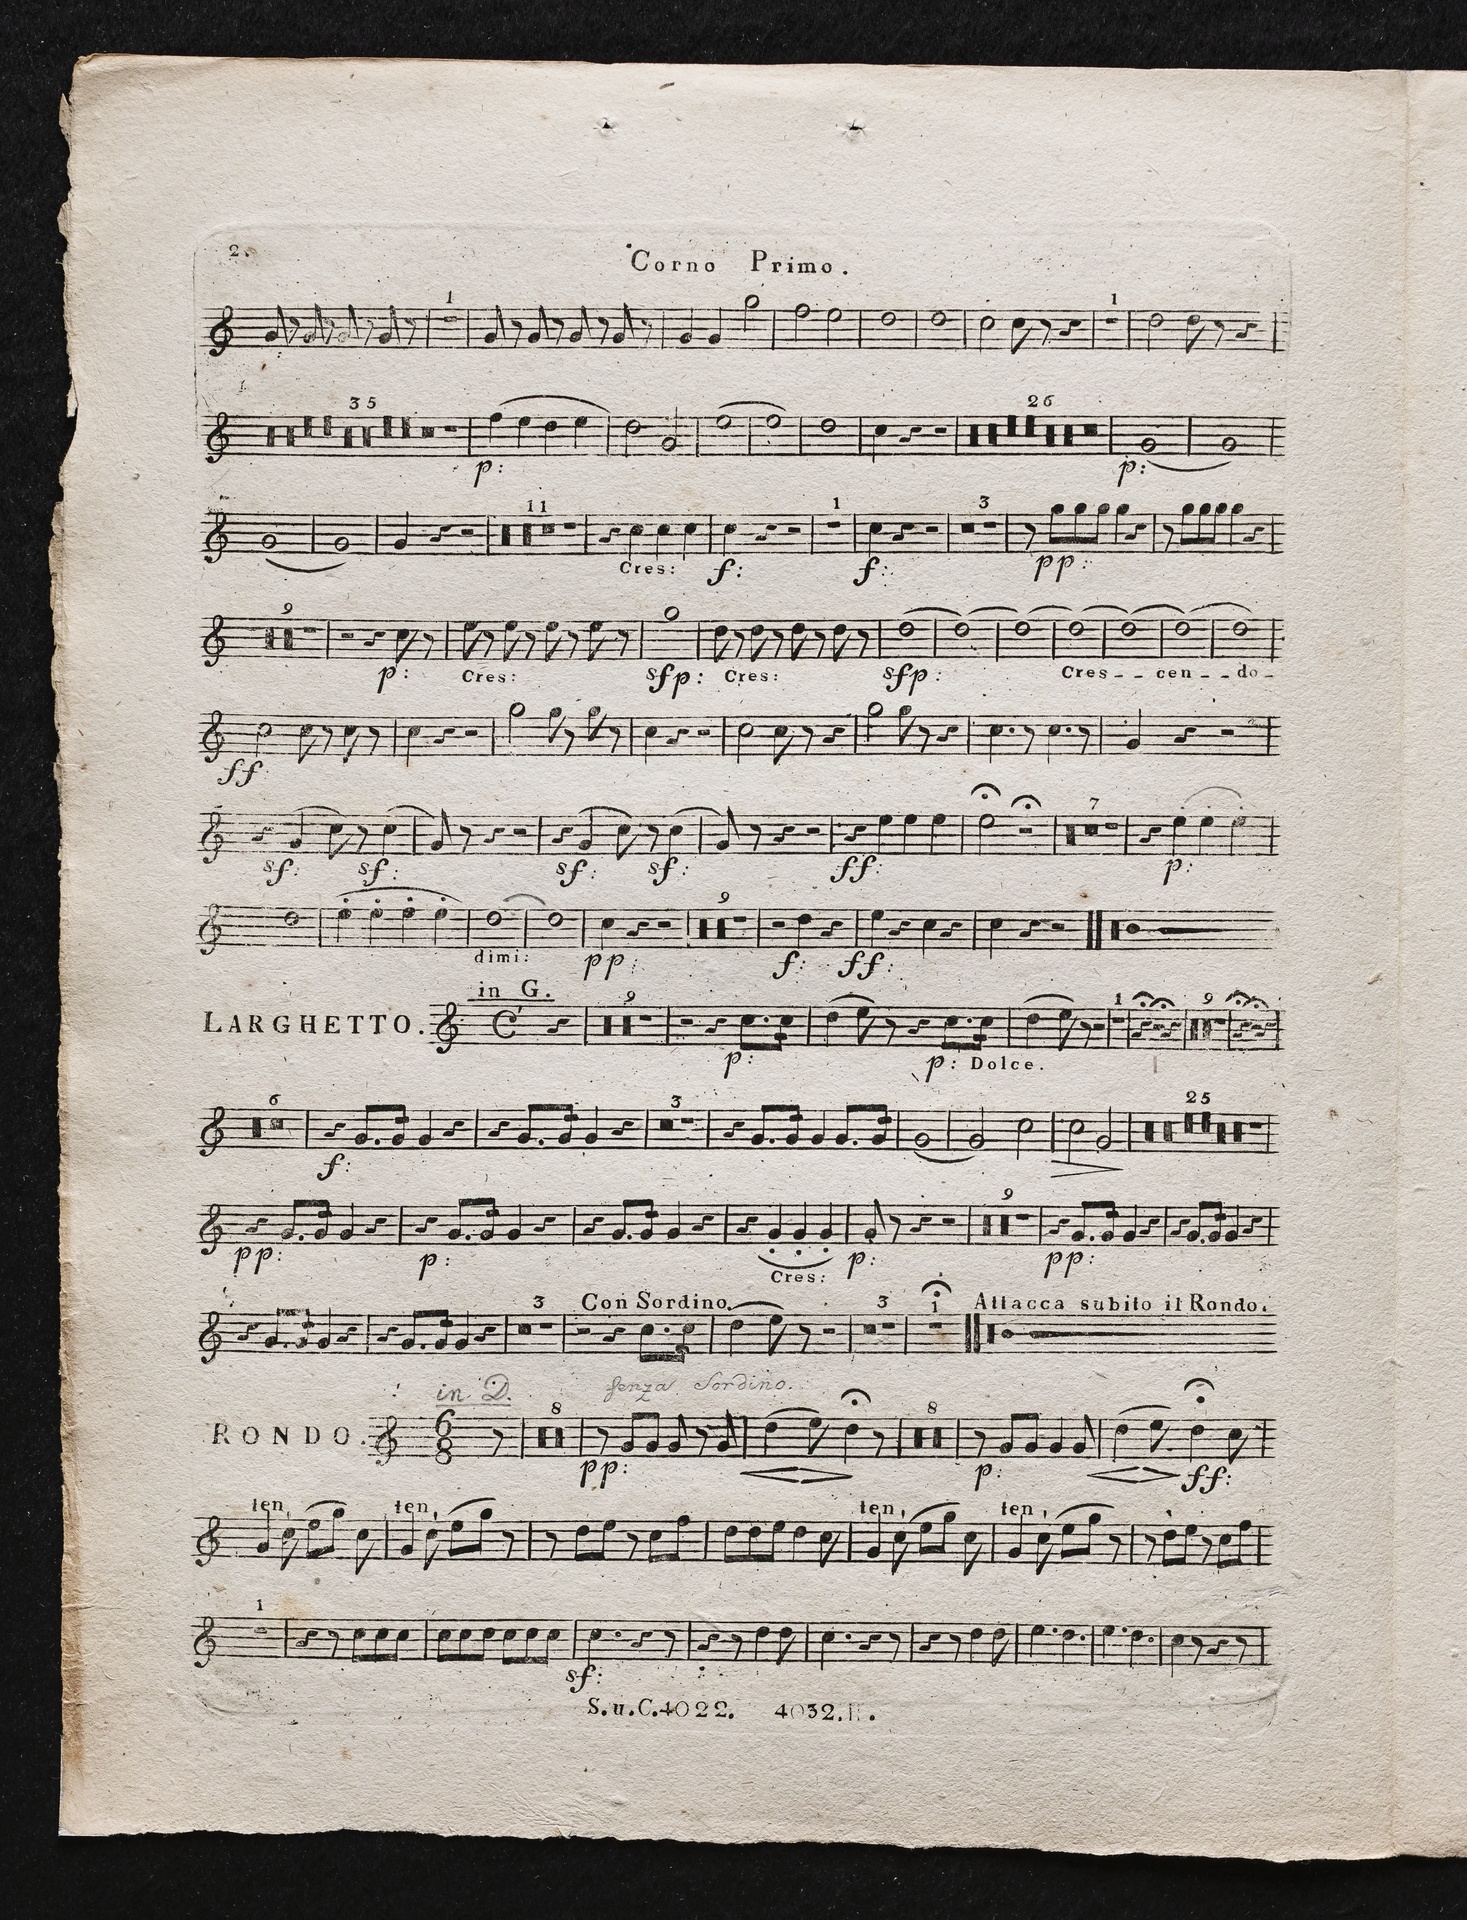 2.
Corno Primo.
1 1
35 26
p: p:
11 1 3
Cres: f: f: pp:
9
p: Cres: sfp: Cres: sfp: Cres - - cen - - do -
ff
7
sf: sf: sf: sf: ff: p:
9
dimi: pp: f: ff:
in G.
LARGHETTO. 9 1 9
p: p: Dolce.
6 3 25
f:
9
pp: p: Cres: p: pp:
3 Con Sordino. 3 1 Attacca subito il Rondo.
in D. senza Sordino.
RONDO. 6 8 8 8
pp: p: ff:
ten, ten, ten, ten,
1
sf:
S.u.C.4022. 4032.